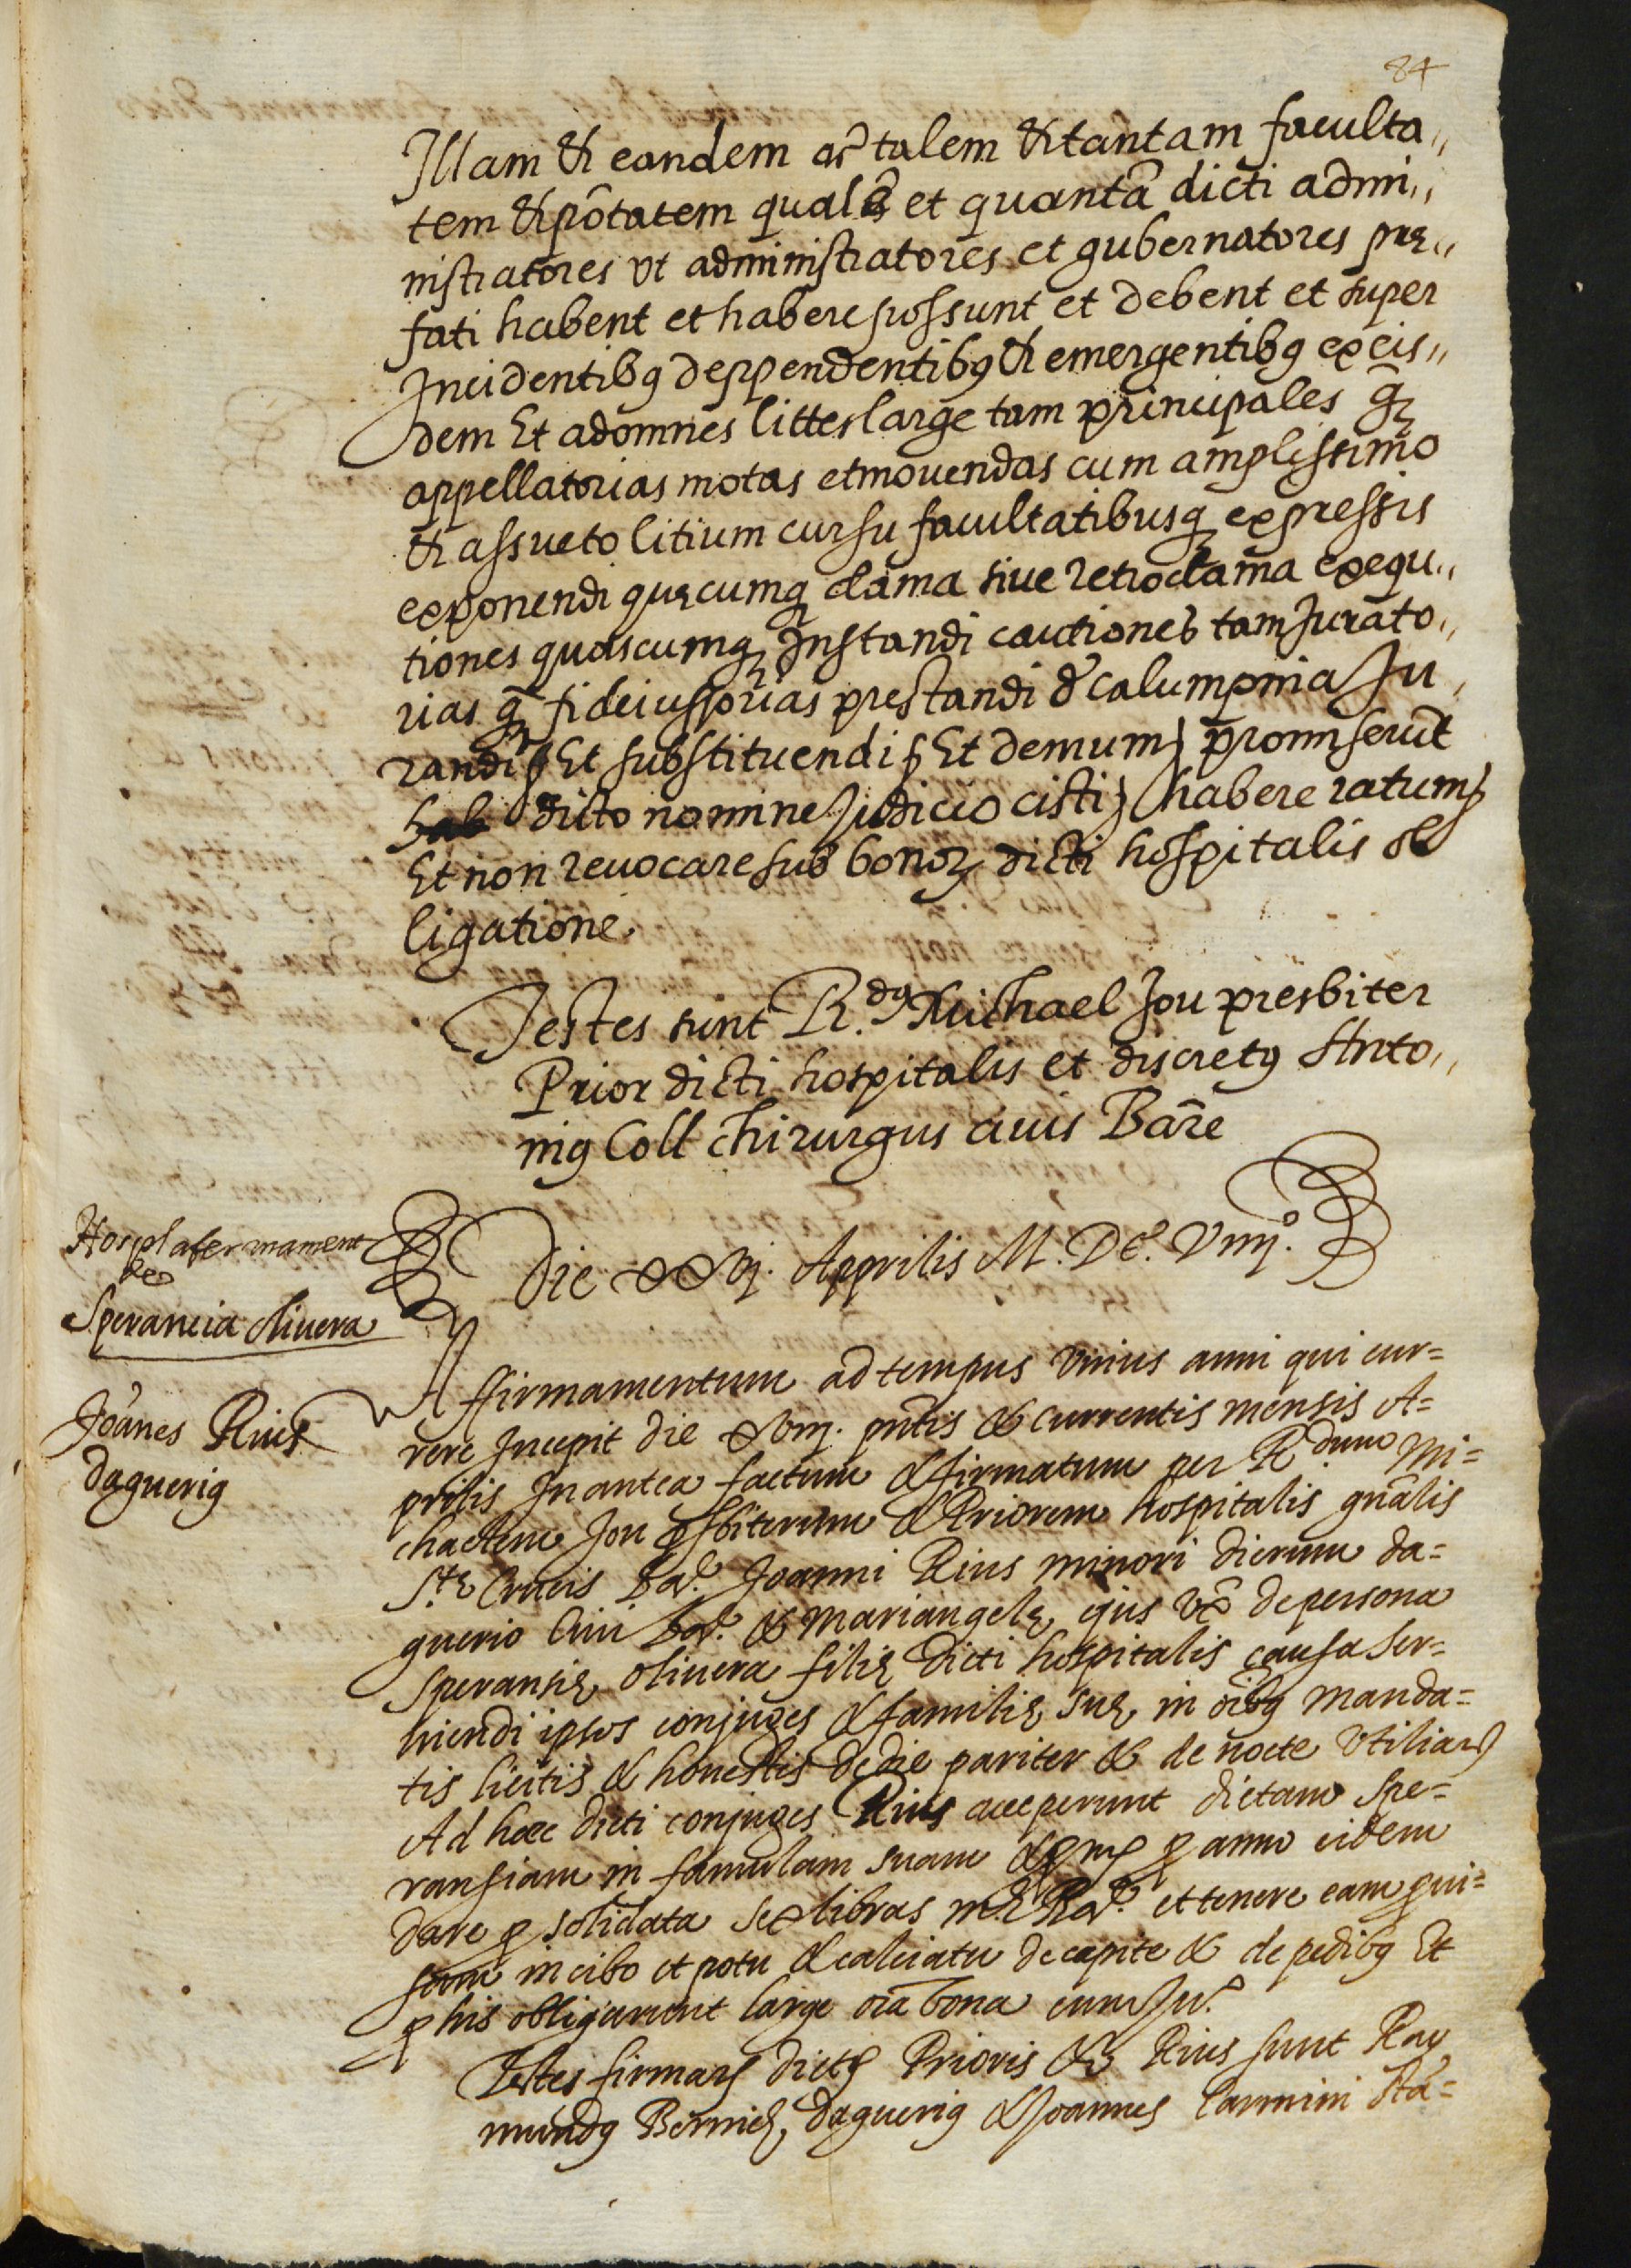 84
Illam et eandem ac talem et tantam faculta„
tem et potatem qualē et quantā dicti admi„
nistratores vt administratores et gubernatores præ„
fati habent et habere possunt et debent et super
Incidentibus deppendentibus et emergentibus ex eis„
dem Et ad omnes littes large tam principales q̃
appellatorias motas et mouendas cum amplissimo
et assueto litium cursu facultatibusq expressis
exponendi quæcumq clama siue retroclama exequ„
tiones quascumq Instandi cautiones tam Jurato„
rias q̃ fideiussorias prestandi de calumpnia Ju„
randi Et substituendi Et demum promiserūt
dicto nomine Judicio cisti habere ratum
Et non reuocare sub bonor dicti hospitalis ob
ligatione.
Testes sunt R.dus Michael Jou presbiter
Prior dicti hospitalis et discretus Anto„
nius Coll chirurgus ciuis Barc̃
Die xxvj. Apprilis M. DC. Viiij.º
Hospl afermament
de
Sperancia oliuera
Joanes Rius
daguerius
Affirmamentum ad tempus vnius anni qui cur=
rere Incepit die xviij. pñtis et currentis mensis A=
prilis In antea factum et firmatum per Rdum Mi=
chaelem Jou pr̃sbiterum et Priorem hospitalis gnãlis
S.tæ Crucis Bar. Joanni Rius minori dierum da=
guerio Ciui Bar. et Mariangelæ ejus vx̃ de persona
Speransiæ oliuera filiæ dicti hospitalis causa ser=
uiendi ipsos conjuges et familiæ suæ in oĩbus manda=
tis licitis et honestis de die pariter et de nocte vtiliar
Ad hæc dicti conjuges Rius acceperunt dictam Spe=
ransiam in famulam suam et prom p anno eidem
dare p solidata sex libras mꝶ Bar. et tenere eam proui=
sam in cibo et potu et calciatu de capite et de pedibus Et
p his obligarunt large oĩa bona cum Ju.
Testes firmar dictor Prioris et Rius sunt Ray
mundus Bernich, daguerius et Joannes Carmini sta=